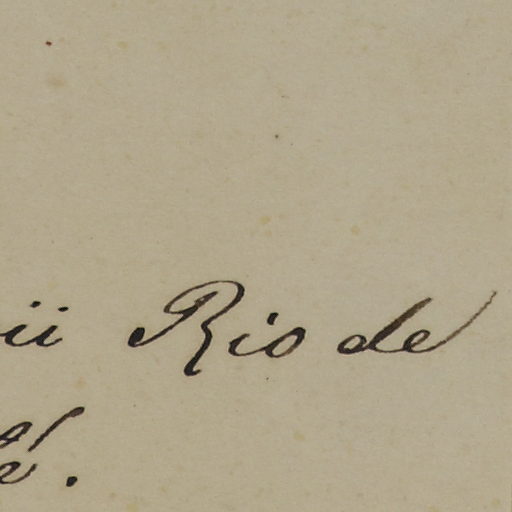 ii Rio de